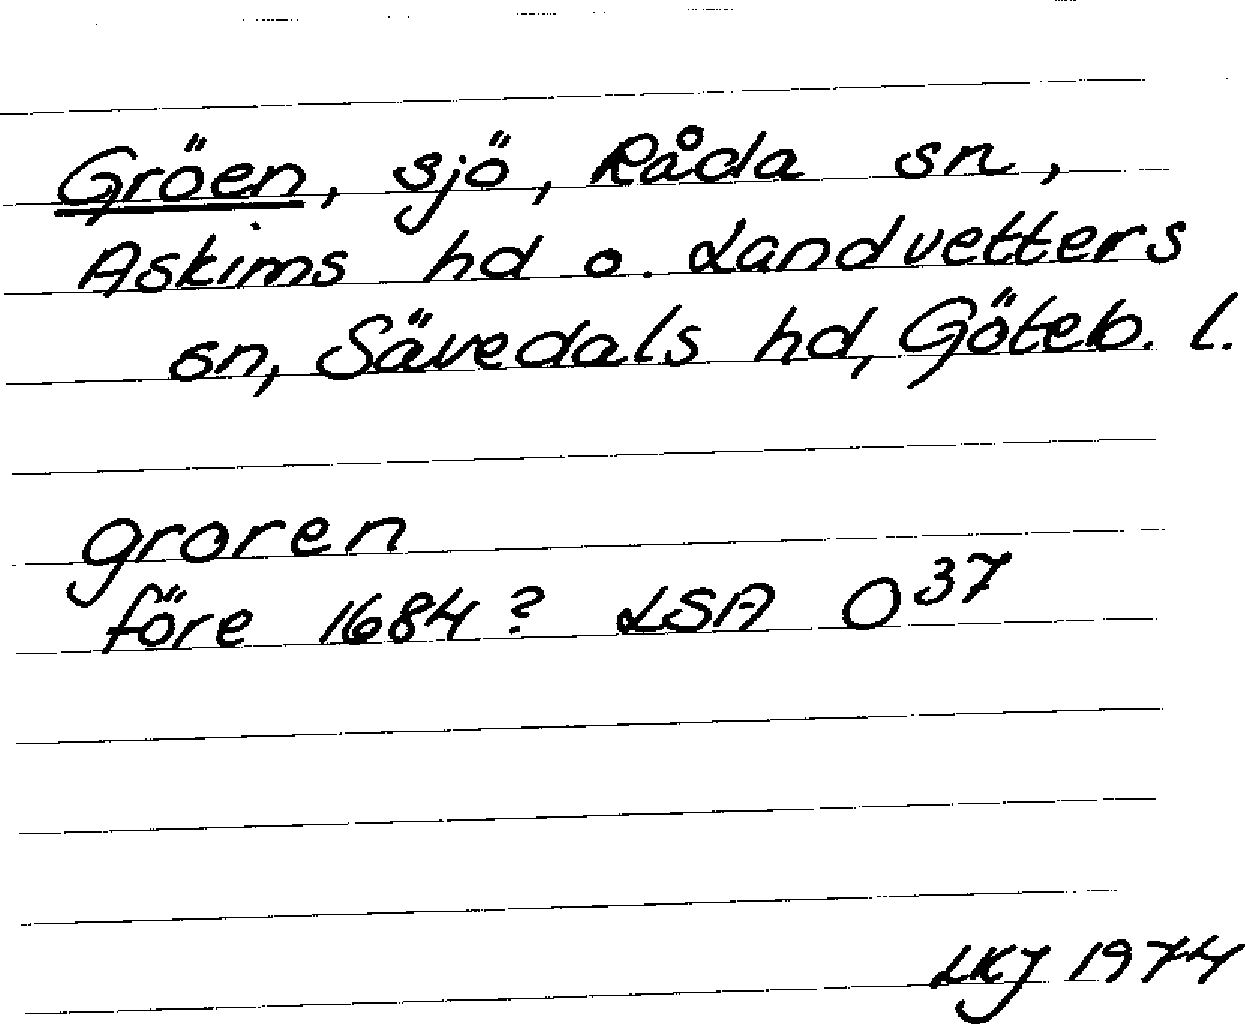 Gröen, sjö, Råda sn,
Askims hd o. Landvetters
sn, Sävedals hd, Göteb. l.
groren
före 1684? LSA O37
LKJ 1974